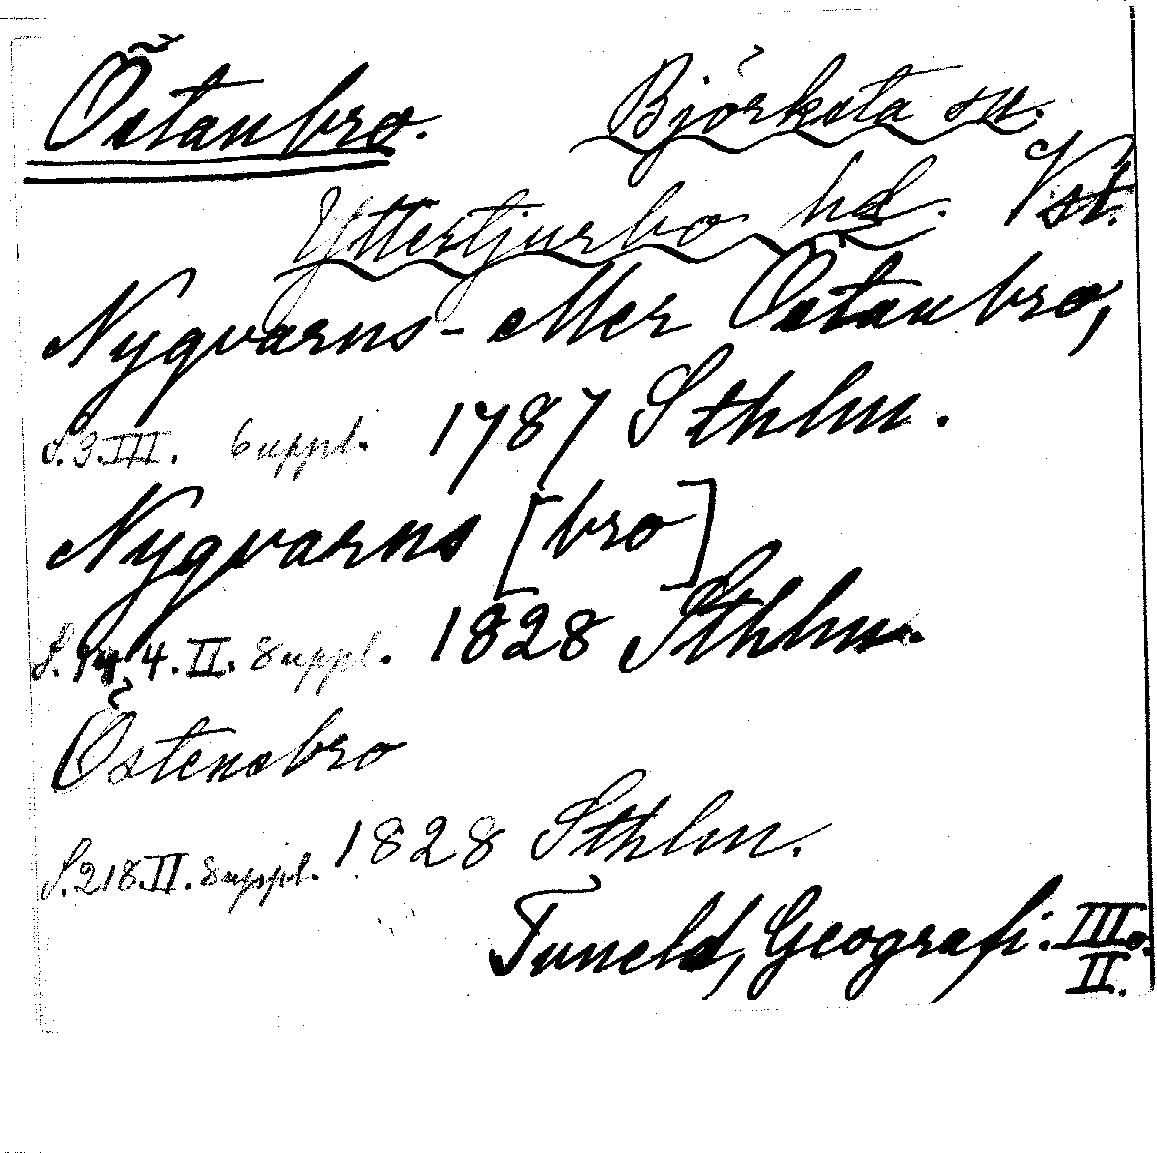 Östanbro. Björksta sn.
Yttertjurbo hd. Vst.
Nygvarns- eller Östanbro,
S. 9. III. Suppl. 1787 Sthlm.
Nygvarns [bro]
S. 4. II. Suppl. 1828 Sthlm.
Östenebro
S. 218. II. Suppl. 1828 Sthlm.
Tuneld, Geografi. III o. II.